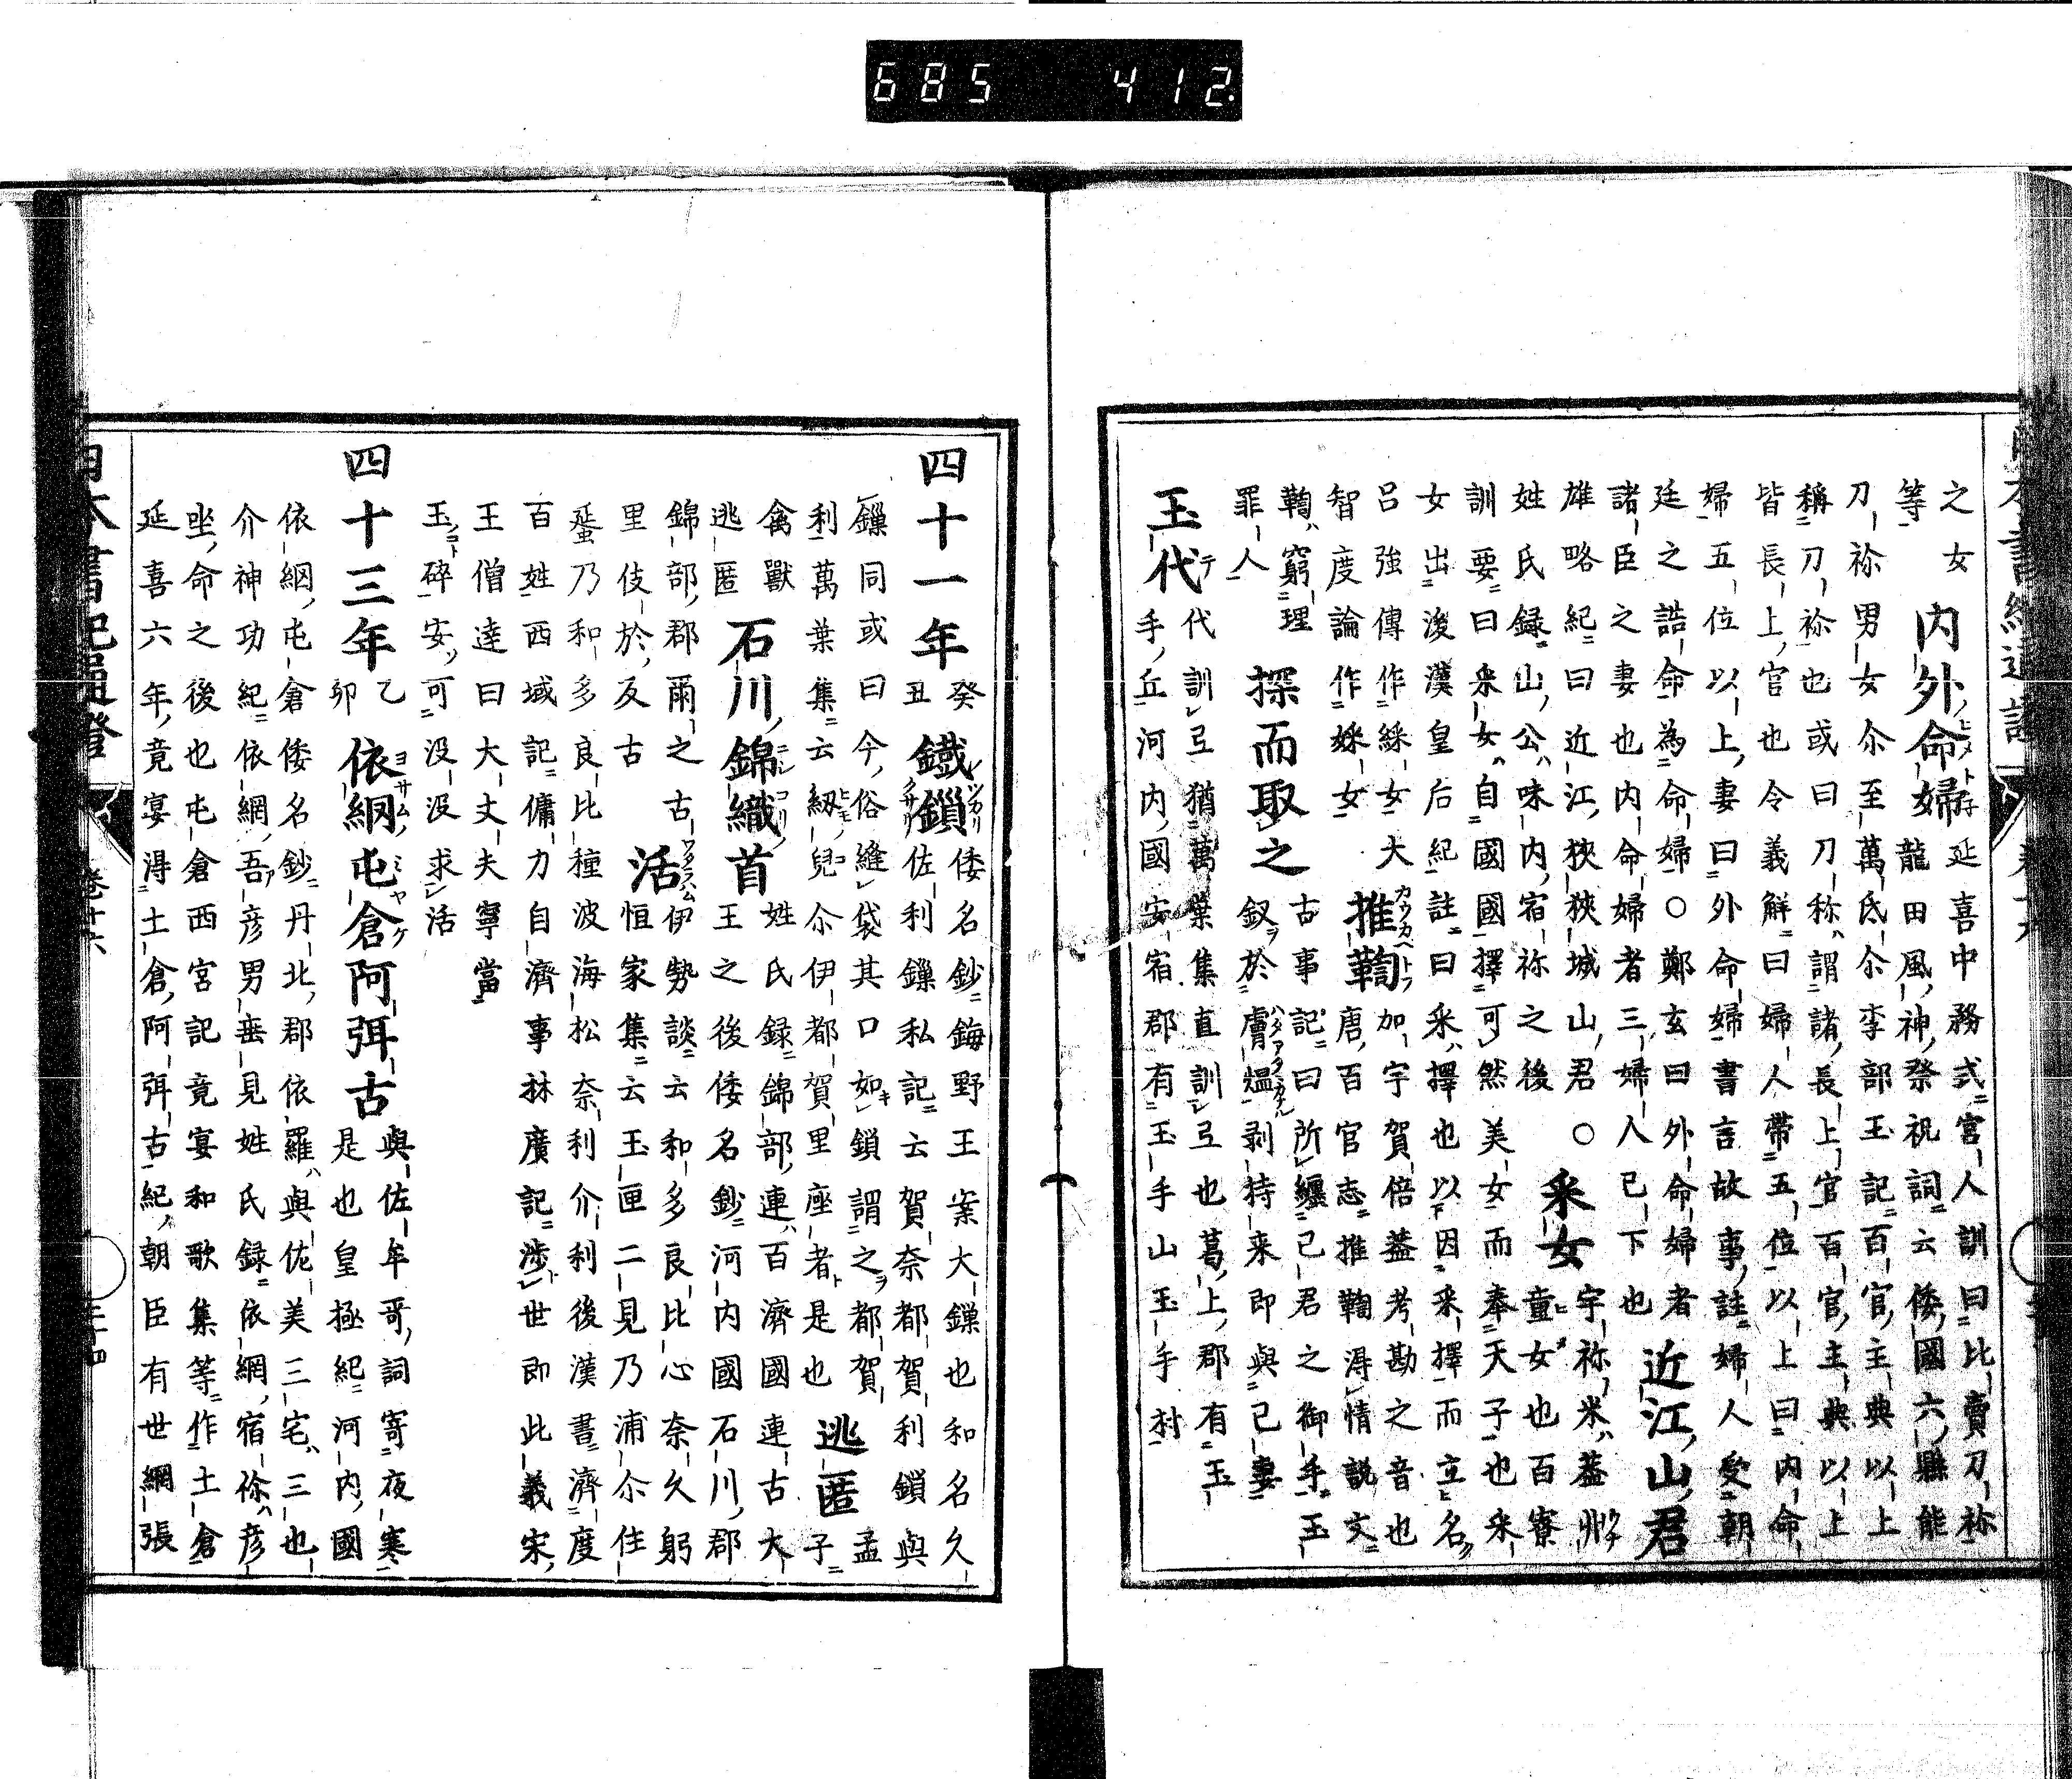 685 412
之女 内外命婦 延喜中務式宮人訓曰比賣刀祢
等 龍田風神祭祝詞云倭國六縣能
刀祢男女尒至萬氐尒李部王記百官主典以上
稱刀祢也或曰刀称謂諸長上官百官主典以上
皆長上官也令義解曰婦人帶五位以上曰内命
婦五位以上妻曰外命婦書言故事註婦人受朝
廷之誥命為命婦○鄭玄曰外命婦者 近江山君
諸臣之妻也内命婦者三婦人已下也
雄略紀曰近江狹狹城山君○ 采女 宇祢米蓋
姓氏録山公味内宿祢之後 童女也百寮
訓要曰采女自國國擇可然美女而奉天子也采
女出後漢皇后紀註曰采擇也以因采擇而立名
呂強傳作綵女大 推鞫 加宇賀倍蓋考勘之音也
智度論作婇女 唐百官志推鞫得情説文
鞫窮理 探而取之 古事記曰所纏己君之御手玉
罪人 釼於膚熅剥持来即與己妻
玉代 代訓弖猶萬葉集直訓弖也葛上郡有玉
手丘河内國安宿郡有玉手山玉手村
四十一年 癸丑 鐵鎖 倭名鈔鋂野王案大鏁也和名久
佐利鏁私記云賀奈都賀利鎖與
鏁同或曰今俗縫袋其口如鎖謂之都賀 逃匿 孟
利萬葉集云紐兒尒伊都賀里座者是也 子
禽獸 石川錦織首 姓氏録錦部連百濟國連古大
逃匿 王之後倭名鈔河内國石川郡
錦部郡爾之古 活 伊勢談云和多良比心奈久躬
里伎於反古 恒家集云玉匣二見乃浦尒住
蜑乃和多良比種波海松奈利介利後漢書濟度
百姓西域記傭力自濟事林廣記渉世即此義宋
王僧逹曰大丈夫寧當
玉碎安可没没求活
四十三年 乙卯 依網屯倉阿弭古 與佐牟哥詞寄夜寒
是也皇極紀河内國
依網屯倉倭名鈔丹北郡依羅與佐美三宅三也
介神功紀依網吾彦男垂見姓氏録依網宿祢彦
坐命之後也屯倉西宮記竟宴和歌集等作土倉
延喜六年竟宴得土倉阿弭古紀朝臣有世網張
日本書紀通證 卷十六